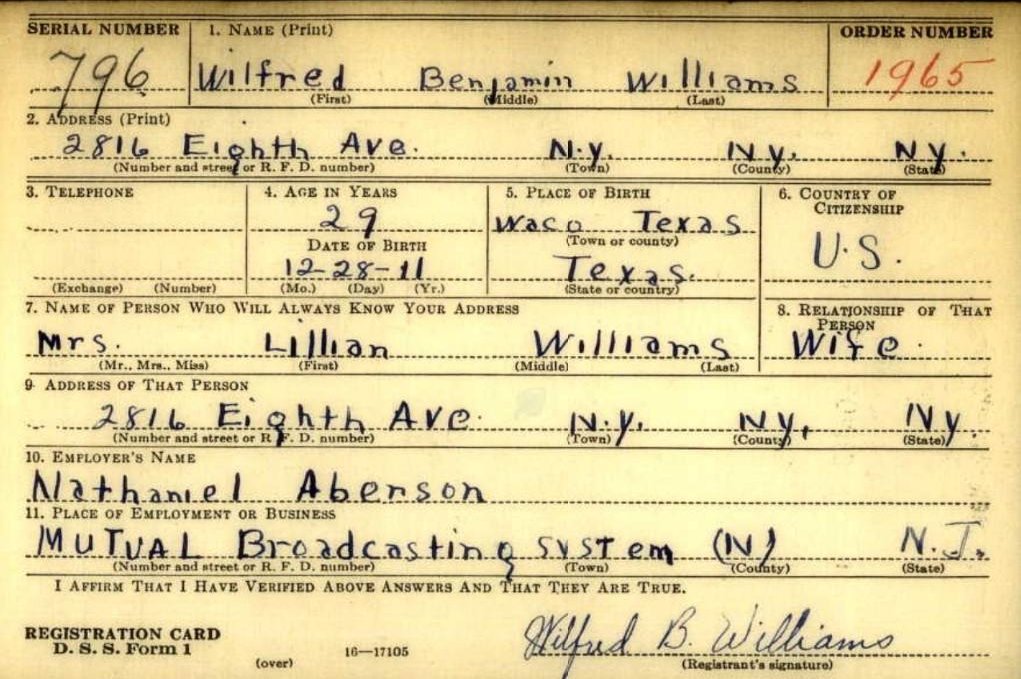 SERIAL NUMBER 1. NAME (Print) ORDER NUMBER
796 Wilfred Benjamin Williams 1965
(First) (Middle) (Last)
2. ADDRESS (Print)
2816 Eighth Ave. N.y. Ny. NY.
(Number and street or R. F. D. number) (Town) (County) (State)
3. TELEPHONE 4. AGE IN YEARS 5. PLACE OF BIRTH 6. COUNTRY OF
CITIZENSHIP
29 Waco Texas
DATE OF BIRTH (Town or county) U.S.
12-28-11 Texas.
(Exchange) (Number) (Mo.) (Day) (Yr.) (State or country)
7. NAME OF PERSON WHO WILL ALWAYS KNOW YOUR ADDRESS 8. RELATIONSHIP OF THAT
PERSON
Mrs. Lillian Williams Wife.
(Mr., Mrs., Miss) (First) (Middle) (Last)
9. ADDRESS OF THAT PERSON
2816 Eighth Ave. N.y. Ny, Ny.
(Number and street or R. F. D. number) (Town) (County) (State)
10. EMPLOYER'S NAME
Nathaniel Abenson
11. PLACE OF EMPLOYMENT OR BUSINESS
MUTUAL Broadcasting SYSTem (N) N.J.
(Number and street or R. F. D. number) (Town) (County) (State)
I AFFIRM THAT I HAVE VERIFIED ABOVE ANSWERS AND THAT THEY ARE TRUE.
REGISTRATION CARD
D. S. S. Form 1 16—17105 Wilfred B. Williams
(over) (Registrant's signature)